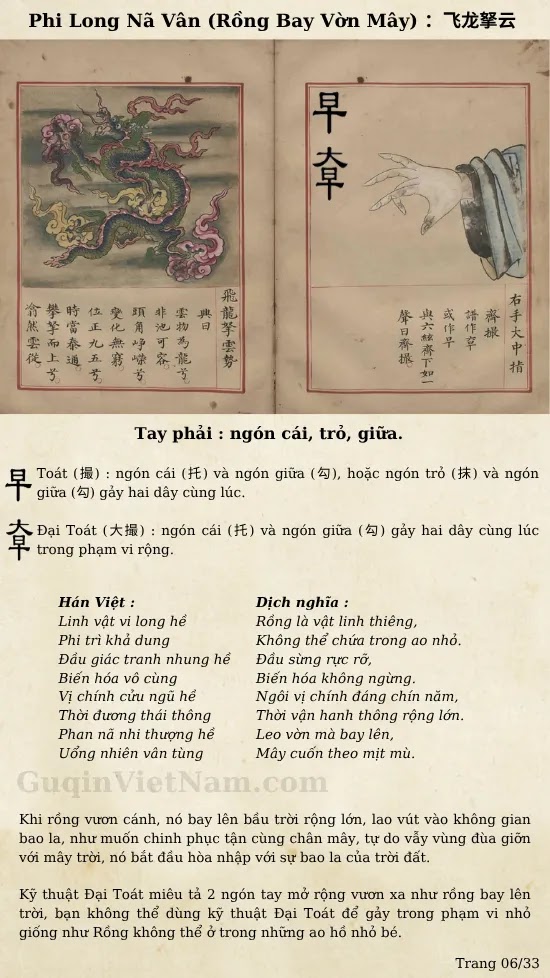 Phi Long Nã Vân (Rồng Bay Vờn Mây) : 飞龙拏云
早
大早
飛龍拏雲勢
興曰
物為龍兮
非池可容
頭角崢嶸兮
變化無窮
位正九五兮
時當泰通
攀拏而上兮
滃然雲從
右手大中指
齊撮
譜作
或作早
與六絃齊下如一
聲曰齊撮
Tay phải : ngón cái, trỏ, giữa.
早 Toát (撮) : ngón cái (托) và ngón giữa (勾), hoặc ngón trỏ (抹) và ngón
giữa (勾) gảy hai dây cùng lúc.
大早 Đại Toát (大撮) : ngón cái (托) và ngón giữa (勾) gảy hai dây cùng lúc
trong phạm vi rộng.
Hán Việt :
Linh vật vi long hề
Phi trì khả dung
Đầu giác tranh nhung hề
Biến hóa vô cùng
Vị chính cửu ngũ hề
Thời đương thái thông
Phan nã nhi thượng hề
Uổng nhiên vân tùng
Dịch nghĩa :
Rồng là vật linh thiêng,
Không thể chứa trong ao nhỏ.
Đầu sừng rực rỡ,
Biến hóa không ngừng.
Ngôi vị chính đáng chín năm,
Thời vận hanh thông rộng lớn.
Leo vờn mà bay lên,
Mây cuốn theo mịt mù.
GuqinVietNam.com
Khi rồng vươn cánh, nó bay lên bầu trời rộng lớn, lao vút vào không gian
bao la, như muốn chinh phục tận cùng chân mây, tự do vẫy vùng đùa giỡn
với mây trời, nó bắt đầu hòa nhập với sự bao la của trời đất.
Kỹ thuật Đại Toát miêu tả 2 ngón tay mở rộng vươn xa như rồng bay lên
trời, bạn không thể dùng kỹ thuật Đại Toát để gảy trong phạm vi nhỏ
giống như Rồng không thể ở trong những ao hồ nhỏ bé.
Trang 06/33